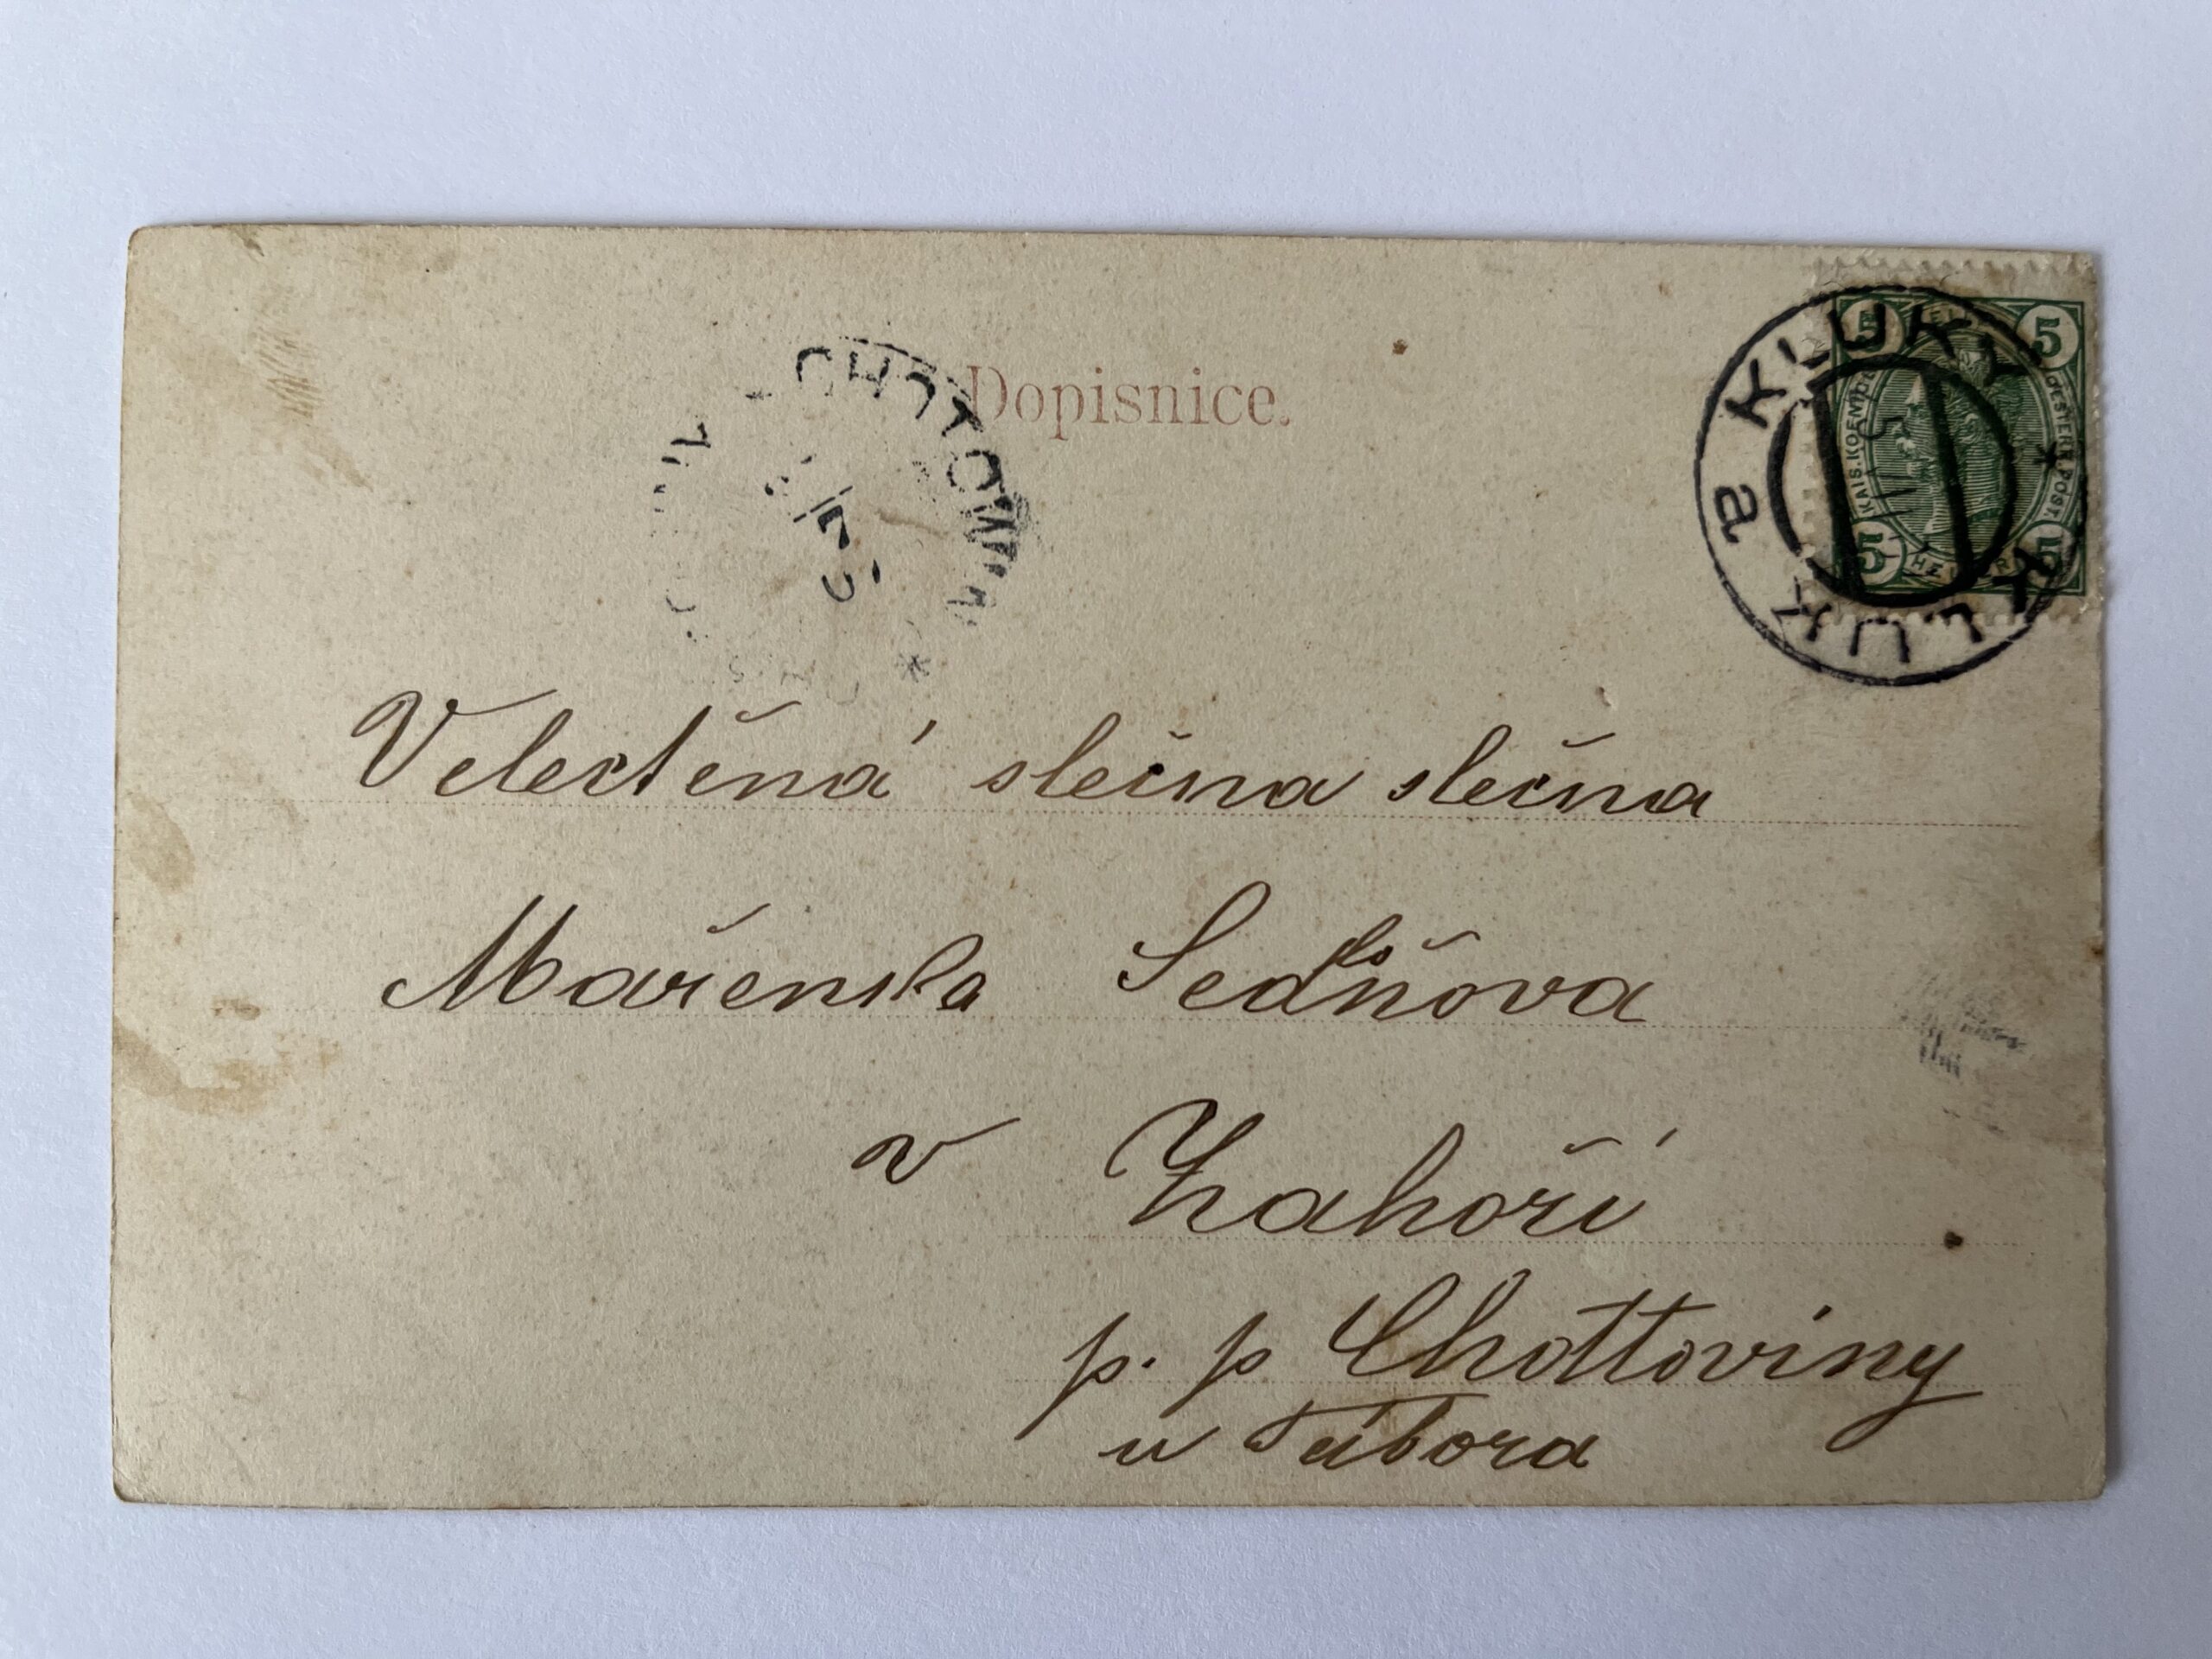 Dopisnice.
KLUKY
KLUK
a
5
5
KAIS. KOENIGL. OESTERR. POST.
5
5
HELLER
CHOTOWIN
Velectěná slečna slečna
Mařenka Sedňova
v Zahoří
p. p Chottoviny
u Tábora